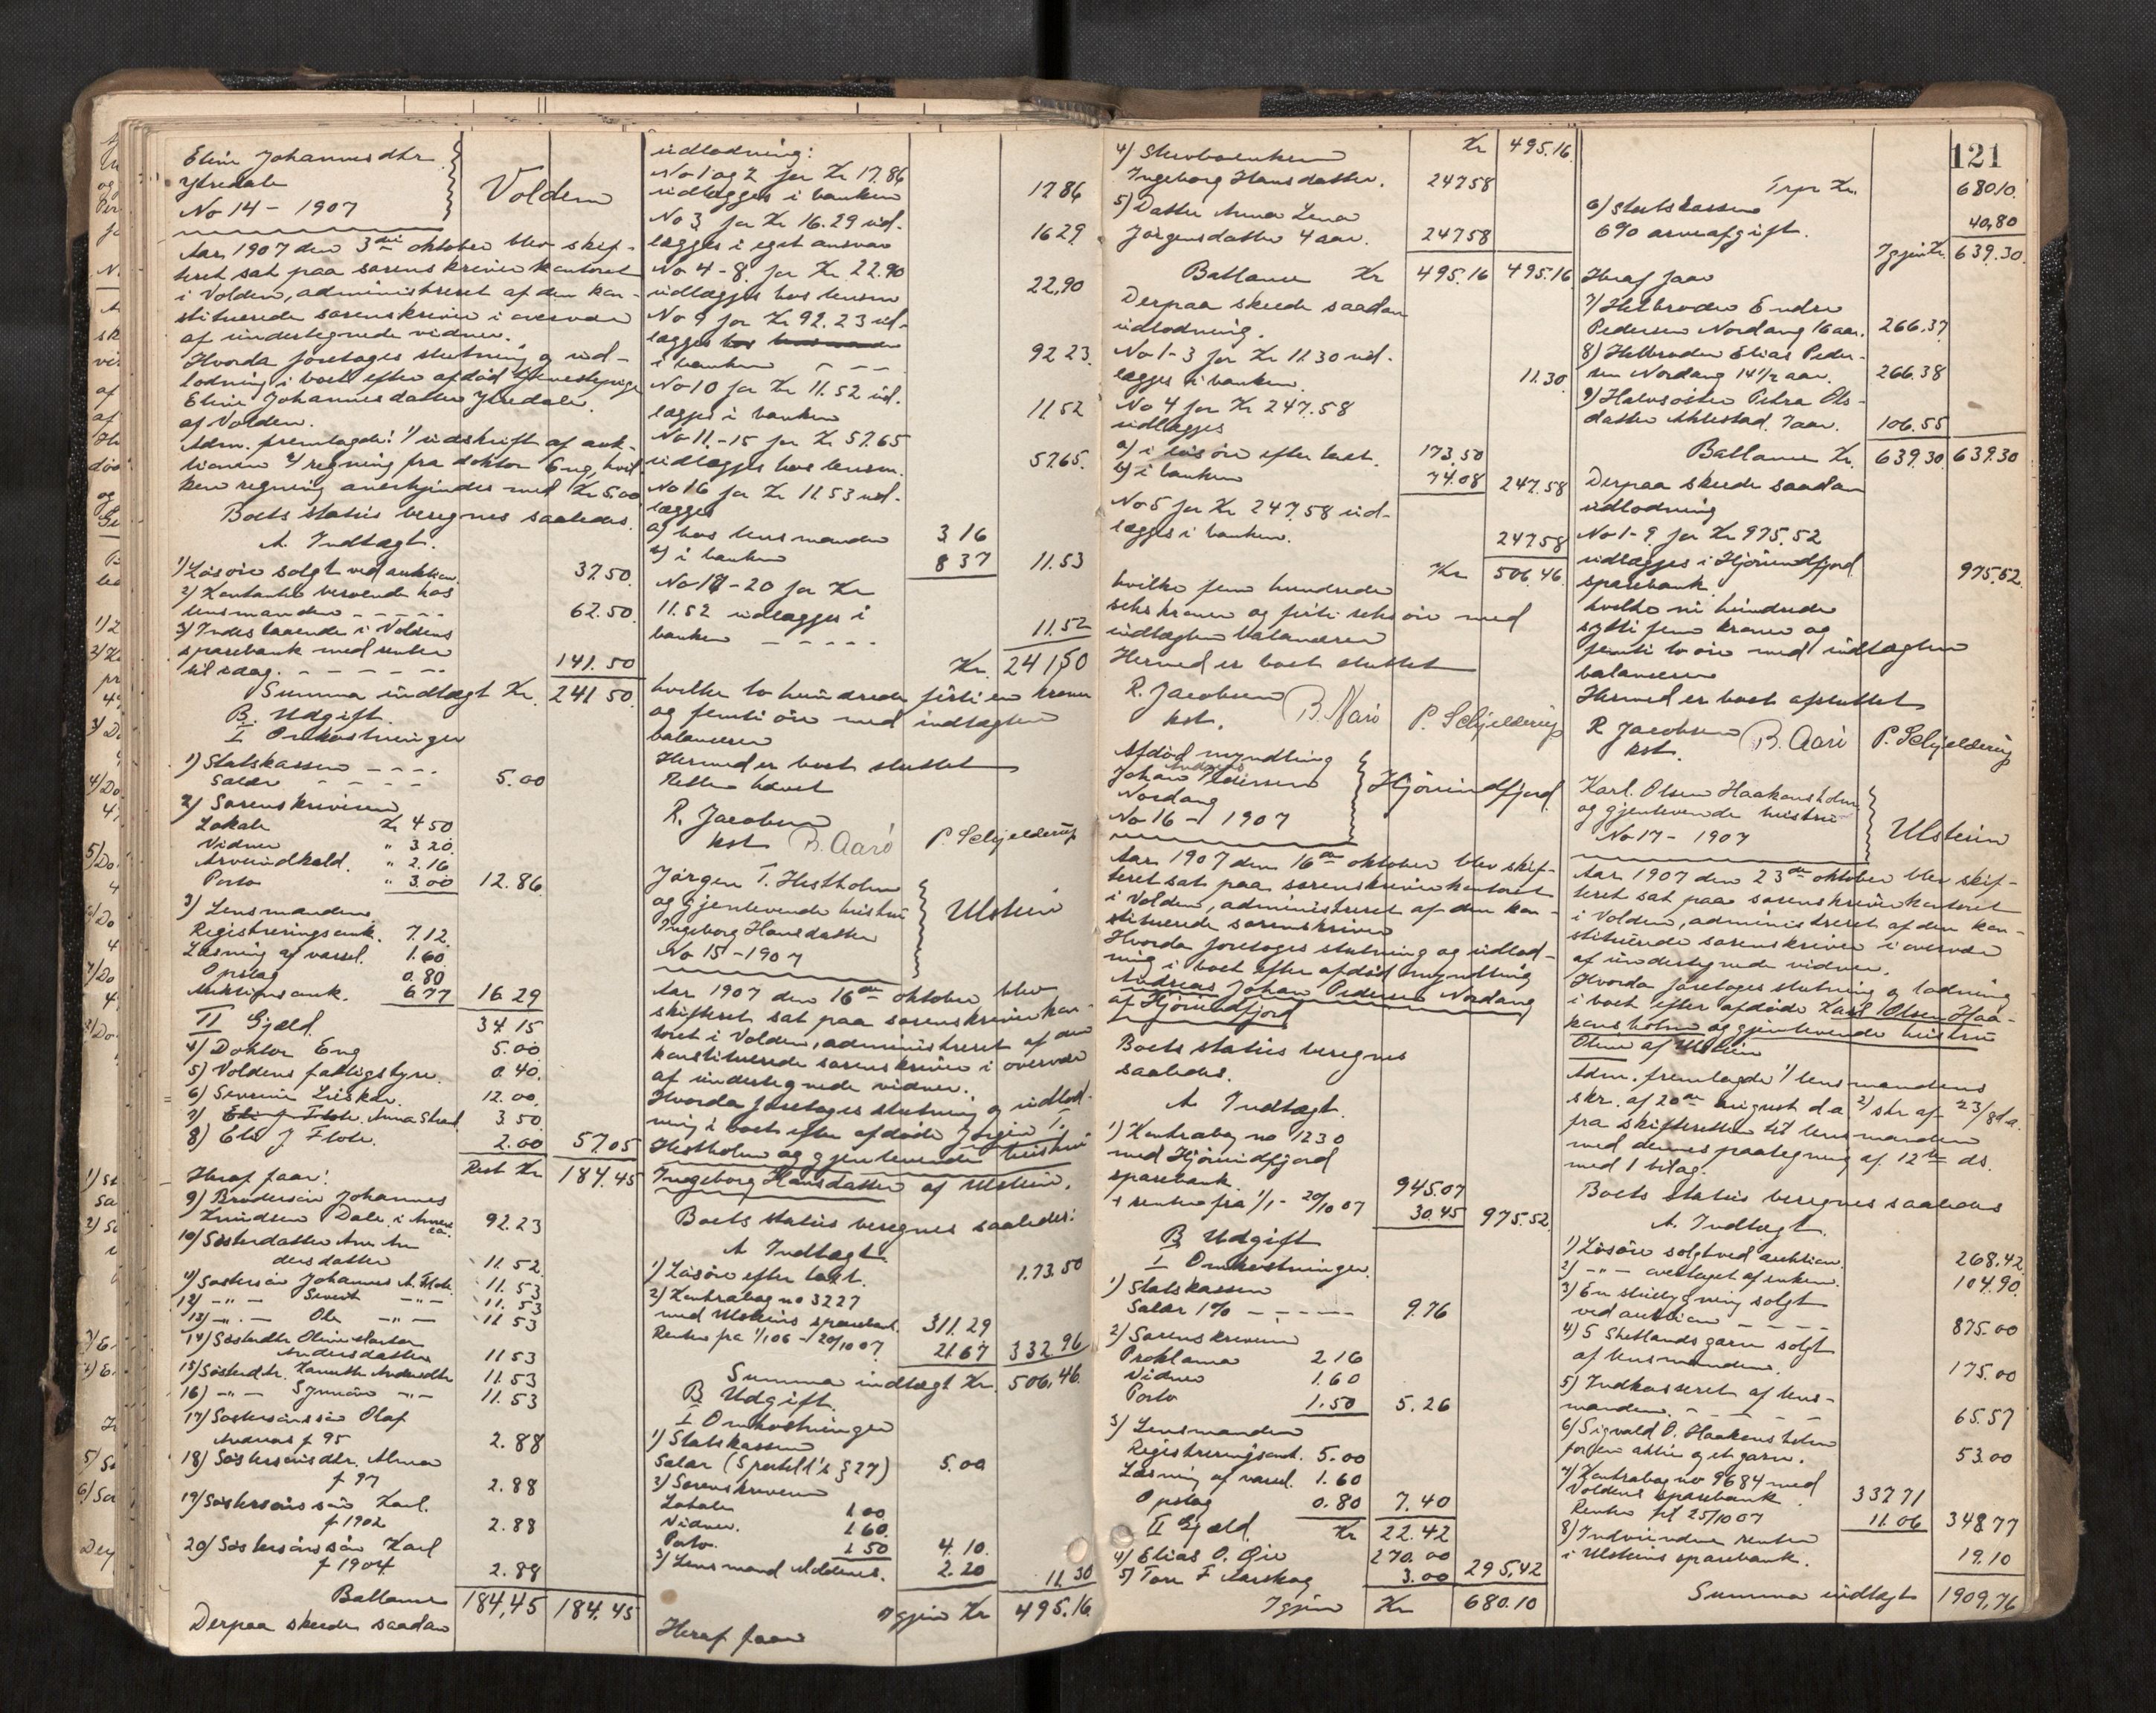 Eline Johannesdtr
Ytredale
No 14 - 1907
Volden
Aar 1907 den 3die oktober blev skif-
teret sat paa sorenskriverkontoret
i Volden, administreret af den kon-
stituerede sorenskriver i overvær
af undertegnede vidner.
Hvorda foretoges slutning og ud-
lodning i boet efter afdød
Eline Johannesdatter Ytredale
af Volden.
Adm. fremlagde: 1/ udskrift af auk-
tionen 2/ regning fra doktor Eng, hvil-
ken regning anerkjendes med Kr 5.00
Boets status beregnes saaledes.
A. Indtægt.
1) Løsøre solgt ved auktion. 37.50.
2) Kontanter beroende hos
lensmanden - - - - - 62.50.
3) Indestaaende i Voldens
sparebank med renter
til idag. - - - - - - 141.50
Summa indtægt Kr. 241.50.
B. Udgift.
I Omkostninger
1) Statskassen - - - -
Salær - - - - 5.00
2) Sorenskriveren
Lokale Kr 4 50
Vidner " 3 20.
Arveindkald. " 2.16
Porto " 3.00 12.86
3) Lensmanden
Registreringsomk. 7.12.
Læsning af varsel. 1.60
Opslag 0.80
Auktionsomk. 6 77 16 29
II Gjæld. 34 15
4) Doktor Eng 5.00
5) Voldens fattigstyre. 0.40.
6) Severine 12.00.
7) Anna 3.50.
8) Eli J Flote. 2.00 57.05
Rest Kr 184.45
Heraf faar:
9) Brodersøn Johannes
Knudsen Dale i Amerika. 92.23
10) Søsterdatter Ane An
dersdatter 11.52.
11) Søstersøn Johannes A. Flote. 11.53
12) -"- Sivert -"- 11.53
13) -"- Ole -"- 11 53
14) Søsterdtr Oline Marta
Andersdatter 11 53
15) Søsterdtr. Andersdtr 11.53
16) -"- -"- 11.53
17) Søstersøns søn Olaf
Andreas f 95 2.88
18) Søstersøns dtr. Alma
f 97 2.88
19) Søstersøns søn Karl.
f 1902 2.88
20) Søstersøns søn Karl
f 1904 2.88
Ballance 184,45 184.45
Derpaa skeede saadan
udlodning:
No 1 og 2 for Kr 17.86
udlægges i banken 17 86
No 3 for Kr 16.29 ud-
lægges i eget ansvar 16 29
No 4-8 for Kr 22.90
udlægges hos lensm. 22,90
No 9 for Kr 92.23 ud-
lægges hos lensmanden
i banken - - - 92 23.
No 10 for Kr 11.52 ud-
lægges i banken 11 52
No 11-15 for Kr 57.65
udlægges hos lensm. 57 65.
No 16 for Kr 11.53 ud-
lægges
a) hos lensmanden 3 16
b) i banken 8 37 11.53
No 17-20 for Kr
11.52 udlægges i
banken - - - - 11.52
Kr. 241,50
hvilke to hundrede firti en kroner
og femti øre med indtægten
balancerer
Hermed er boet sluttet
Retten hævet
R. Jacobsen
kst. B. Aarö P. Schjelderup
Jørgen T. Hestholm
og gjenlevende hustru
Ingeborg Hansdatter
No 15 - 1907
Ulstein
Aar 1907 den 16de oktober blev
skifteret sat paa sorenskriverkon-
toret i Volden, administreret af den
konstituerede sorenskriver i overvær
af undertegnede vidner.
Hvorda foretoges slutning og udlod-
ning i boet efter afdøde Jørgen T.
Hestholm og gjenlevende hustru
Ingeborg Hansdatter af Ulstein.
Boets status beregnes saaledes:
A Indtægt.
1) Løsøre efter takst. 1.73.50
2) Kontrabog no 3227
med Ulsteins sparebank. 311.29
Renter fra 1/1 06 - 20/10 07. 21.67 332.96
Summa indtægt Kr. 506,46.
B Udgift.
I Omkostninger
1) Statskassen
Salær (Sportell's § 27) 5.00
2) Sorenskriveren
Lokale 1.00
Vidner. 1 60.
Porto. 1 50 4.10.
3) Lensmand Aldens. 2.20 11 30
Igjen Kr 495.16.
Heraf faar
4) Skiboenken Kr 495.16
Ingeborg Hansdatter. 247 58
5) Datter Anna Lena
Jørgensdatter 4 aar. 247 58
Ballance Kr 495.16 495.16
Derpaa skeede saadan
udlodning.
No 1-3 for Kr 11 30 ud-
lægges i banken. 11.30
No 4 for Kr 247.58
udlægges
a) i løsøre efter takst. 173.50
b) i banken 74.08 247.58
No 5 for Kr 247.58 ud-
lægges i banken. 247 58
Kr 506.46.
hvilke fem hundrede
seks kroner og firti seks øre med
indtægten balancerer
Hermed er boet sluttet
R. Jacobsen
kst. B. Aarö P. Schjelderup
Afdød myndling
Andreas
Johan Pedersen
Nordang
No 16 - 1907
Hjørundfjord.
Aar 1907 den 16de oktober blev skif-
teret sat paa sorenskriverkontoret
i Volden, administreret af den kon-
stituerede sorenskriver
Hvorda foretoges slutning og udlod-
ning i boet efter afdød myndling
Andreas Johan Pedersen Nordang
af Hjørundfjord
Boets status beregnes
saaledes.
A Indtægt.
1) Kontrabog no 1230
med Hjørundfjord
sparebank. 945.07
+ renter fra 1/1 - 20/10 07 30.45 975.52
B Udgift
I Omkostninger.
1) Statskassen
Salær 1% - - - - - - 9.76
2) Sorenskriveren
Proklama 2.16
Vidner 1.60
Porto 1.50 5.26
3) Lensmanden
Registreringsomk. 5.00
Læsning af varsel. 1.60
Opslag 0.80 7.40
II Gjæld. Kr 22.42
4) Elias O. Øie 270.00
5) Tore F Aarskog 3.00 295,42
Igjen Kr 680.10
121
Trpr Kr. 680 10.
6) Statskassen
6% arveafgift. 40,80
Igjen Kr. 639.30.
Heraf faar
7) Helbroder Endre
Pedersen Nordang 16 aar. 266.37
8) Helbroder Elias Peder-
sen Nordang 14 1/2 aar. 266.38
9) Halvsøster Petra Ols-
datter 7 aar. 106.55
Ballance Kr. 639.30 639.30
Derpaa skeede saadan
udlodning
No 1-9 for Kr 975.52
udlægges i Hjørundfjord
sparebank. 975.52.
hvilke ni hundrede
sytti fem kroner og
femti to øre med indtægten
balancerer
Hermed er boet afsluttet
R Jacobsen
kst. B. Aarö P. Schjelderup
Karl Olsen Haakonsholm
og gjenlevende hustru
No 17 - 1907
Ulstein
Aar 1907 den 23de oktober blev skif-
teret sat paa sorenskriverkontoret
i Volden, administreret af den kon-
stituerede sorenskriver i overvær
af undertegnede vidner.
Hvorda foretoges slutning og lodning
i boet efter afdøde Karl Olsen Haa-
konsholm og gjenlevende hustru
Oline af Ulstein
Adm. fremlagde 1/ lensmandens
skr. af 20de august d.a. 2) skr af 23/8 d.a.
fra skifteretten til lensmanden
med dennes paategning af 12te ds.
med 1 bilag.
Boets status beregnes saaledes
A. Indtægt.
1) Løsøre solgt ved auktion. 268.42.
2) -"- overtaget af enken. 104.90.
3) En solgt
ved auktion - - - - - 875.00
4) 5 Shetlands garn solgt
af lensmanden. 175.00
5) Indkasseret af lens-
manden. - - - - - - 65.57
6) Sigvald O. Haakonsholm
for garn. 53.00
7) Kontrabog no 9684 med
Voldens sparebank. 337 71
Renter til 25/10 07 11.06 348 77
8) Indvundne renter
i Ulsteins sparebank. 19.10
Summa indtægt 1909,76